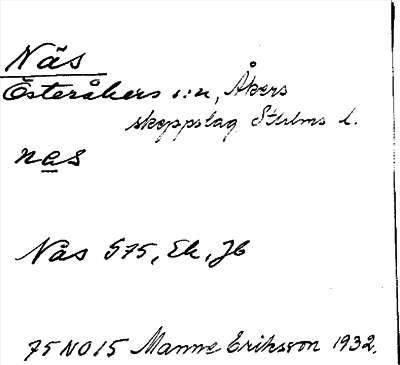 Näs
Österåkers s:n, Åkers
skeppslag Sthlms l.
nas
Näs S75, Ek, Jb
75 NO 15 Manne Eriksson 1932.